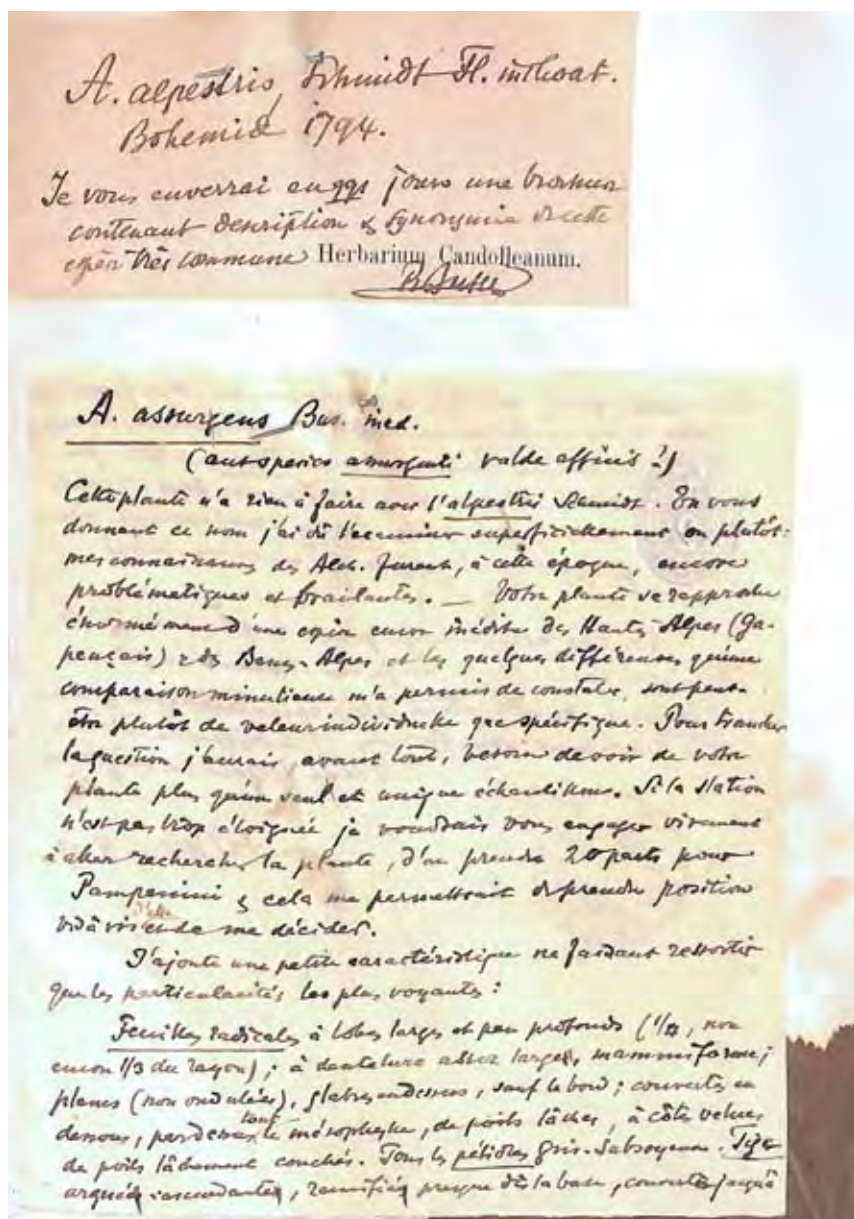 A. alpestris, Schmidt Fl. inchoat.
Bohemiæ 1794.
Je vous enverrai en qqs jours une brochure
contenant description & synonymie de cette
espèce très commune Herbarium Candolleanum.
R Buser
A. assurgens Bus. ined.
(aut species assurgenti valde affinis !)
Cette plante n'a rien à faire avec l'alpestris Schmidt. En vous
donnant ce nom j'ai dû l'examiner superficiellement ou plutôt:
mes connaissances des Alch. furent, à cette époque, encore
problématiques et . — Votre plante se rapproche
énormément d'une espèce encore inédite des Hautes-Alpes (Ga-
pençais) & des Basses-Alpes et les quelques différences qu'une
comparaison minutieuse m'a permis de constater, sont peut-
être plutôt de valeur individuelle que spécifique. Pour trancher
la question j'aurais, avant tout, besoin de voir de votre
plante plus qu'un seul et unique échantillon. Si la station
n'est pas trop éloignée je voudrais vous engager vivement
à aller rechercher la plante, d'en prendre 20 parts pour
Pampanini & cela me permettrait de prendre position
vis à vis et de me décider.
J'ajoute une petite caractéristique ne faisant ressortir
que les particularités les plus voyantes :
Feuilles radicales à lobes larges et peu profonds ( , non
encore 1/3 du rayon) ; à dentelure assez large, mammiforme ;
planes (non ondulées), glabres en dessus, sauf le bord ; couvertes en
dessous, par dessus tout le mésophylle, de poils lâches, à côtes velues
de poils lâchement couchés. Tous les pétioles gris-subsoyeux. Tiges
arquées-ascendantes, ramifiées presque dès la base, couvertes jusqu'à